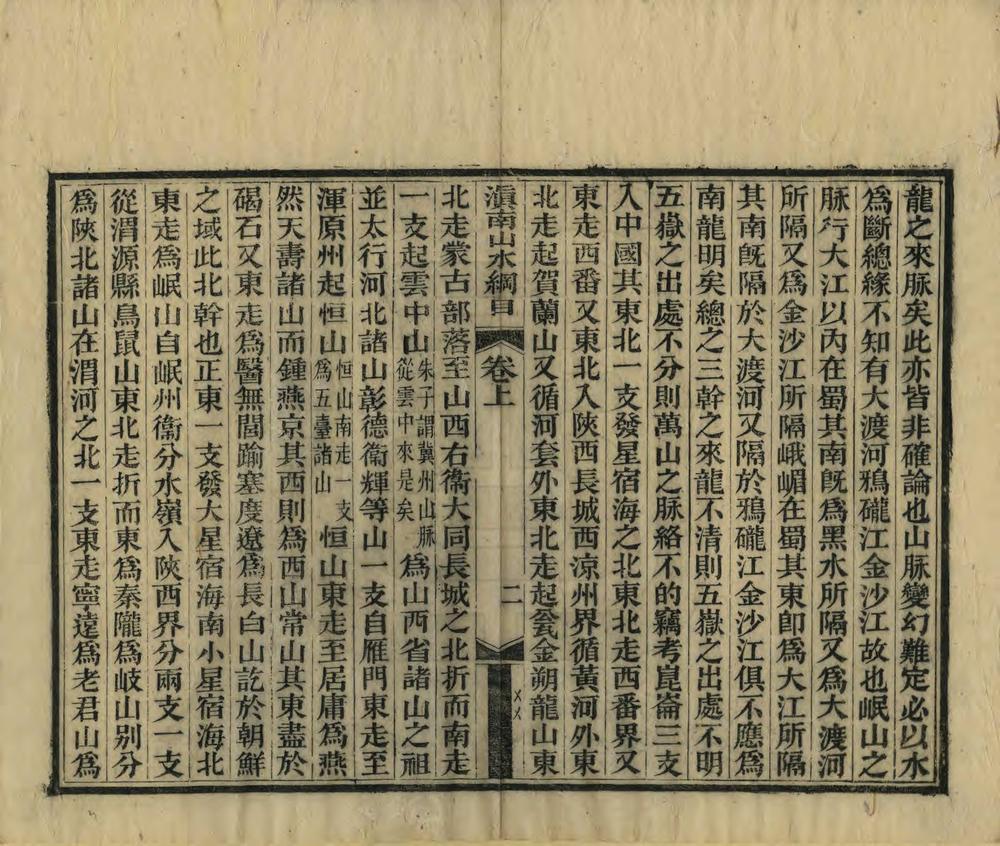 龍之來脉矣此亦皆非確論也山脉變幻難定必以水
爲斷總緣不知有大渡河鴉礲江金沙江故也岷山之
脉行大江以內在蜀其南既爲黑水所隔又爲大渡河
所隔又爲金沙江所隔峨嵋在蜀其東卽爲大江所隔
其南既隔於大渡河又隔於鴉礲江金沙江俱不應爲
南龍明矣總之三幹之來龍不清則五嶽之出處不明
五嶽之出處不分則萬山之脉絡不的竊考崑崙三支
入中國其東北一支發星宿海之北東北走西番界又
東走西番又東北入陝西長城西涼州界循黃河外東
北走起賀蘭山又循河套外東北走起瓮金朔龍山東
滇南山水綱目
卷上
二
北走蒙古部落至山西右衞大同長城之北折而南走
一支起雲中山朱子謂冀州山脉從雲中來是矣爲山西省諸山之祖
並太行河北諸山彰德衞輝等山一支自雁門東走至
渾原州起恒山恒山南走一支爲五臺諸山恒山東走至居庸爲燕
然天壽諸山而鍾燕京其西則爲西山常山其東盡於
碣石又東走爲醫無閭踰塞度遼爲長白山訖於朝鮮
之域此北幹也正東一支發大星宿海南小星宿海北
東走爲岷山自岷州衞分水嶺入陝西界分兩支一支
從渭源縣鳥鼠山東北走折而東爲秦隴爲岐山別分
爲陝北諸山在渭河之北一支東走寧遠爲老君山爲